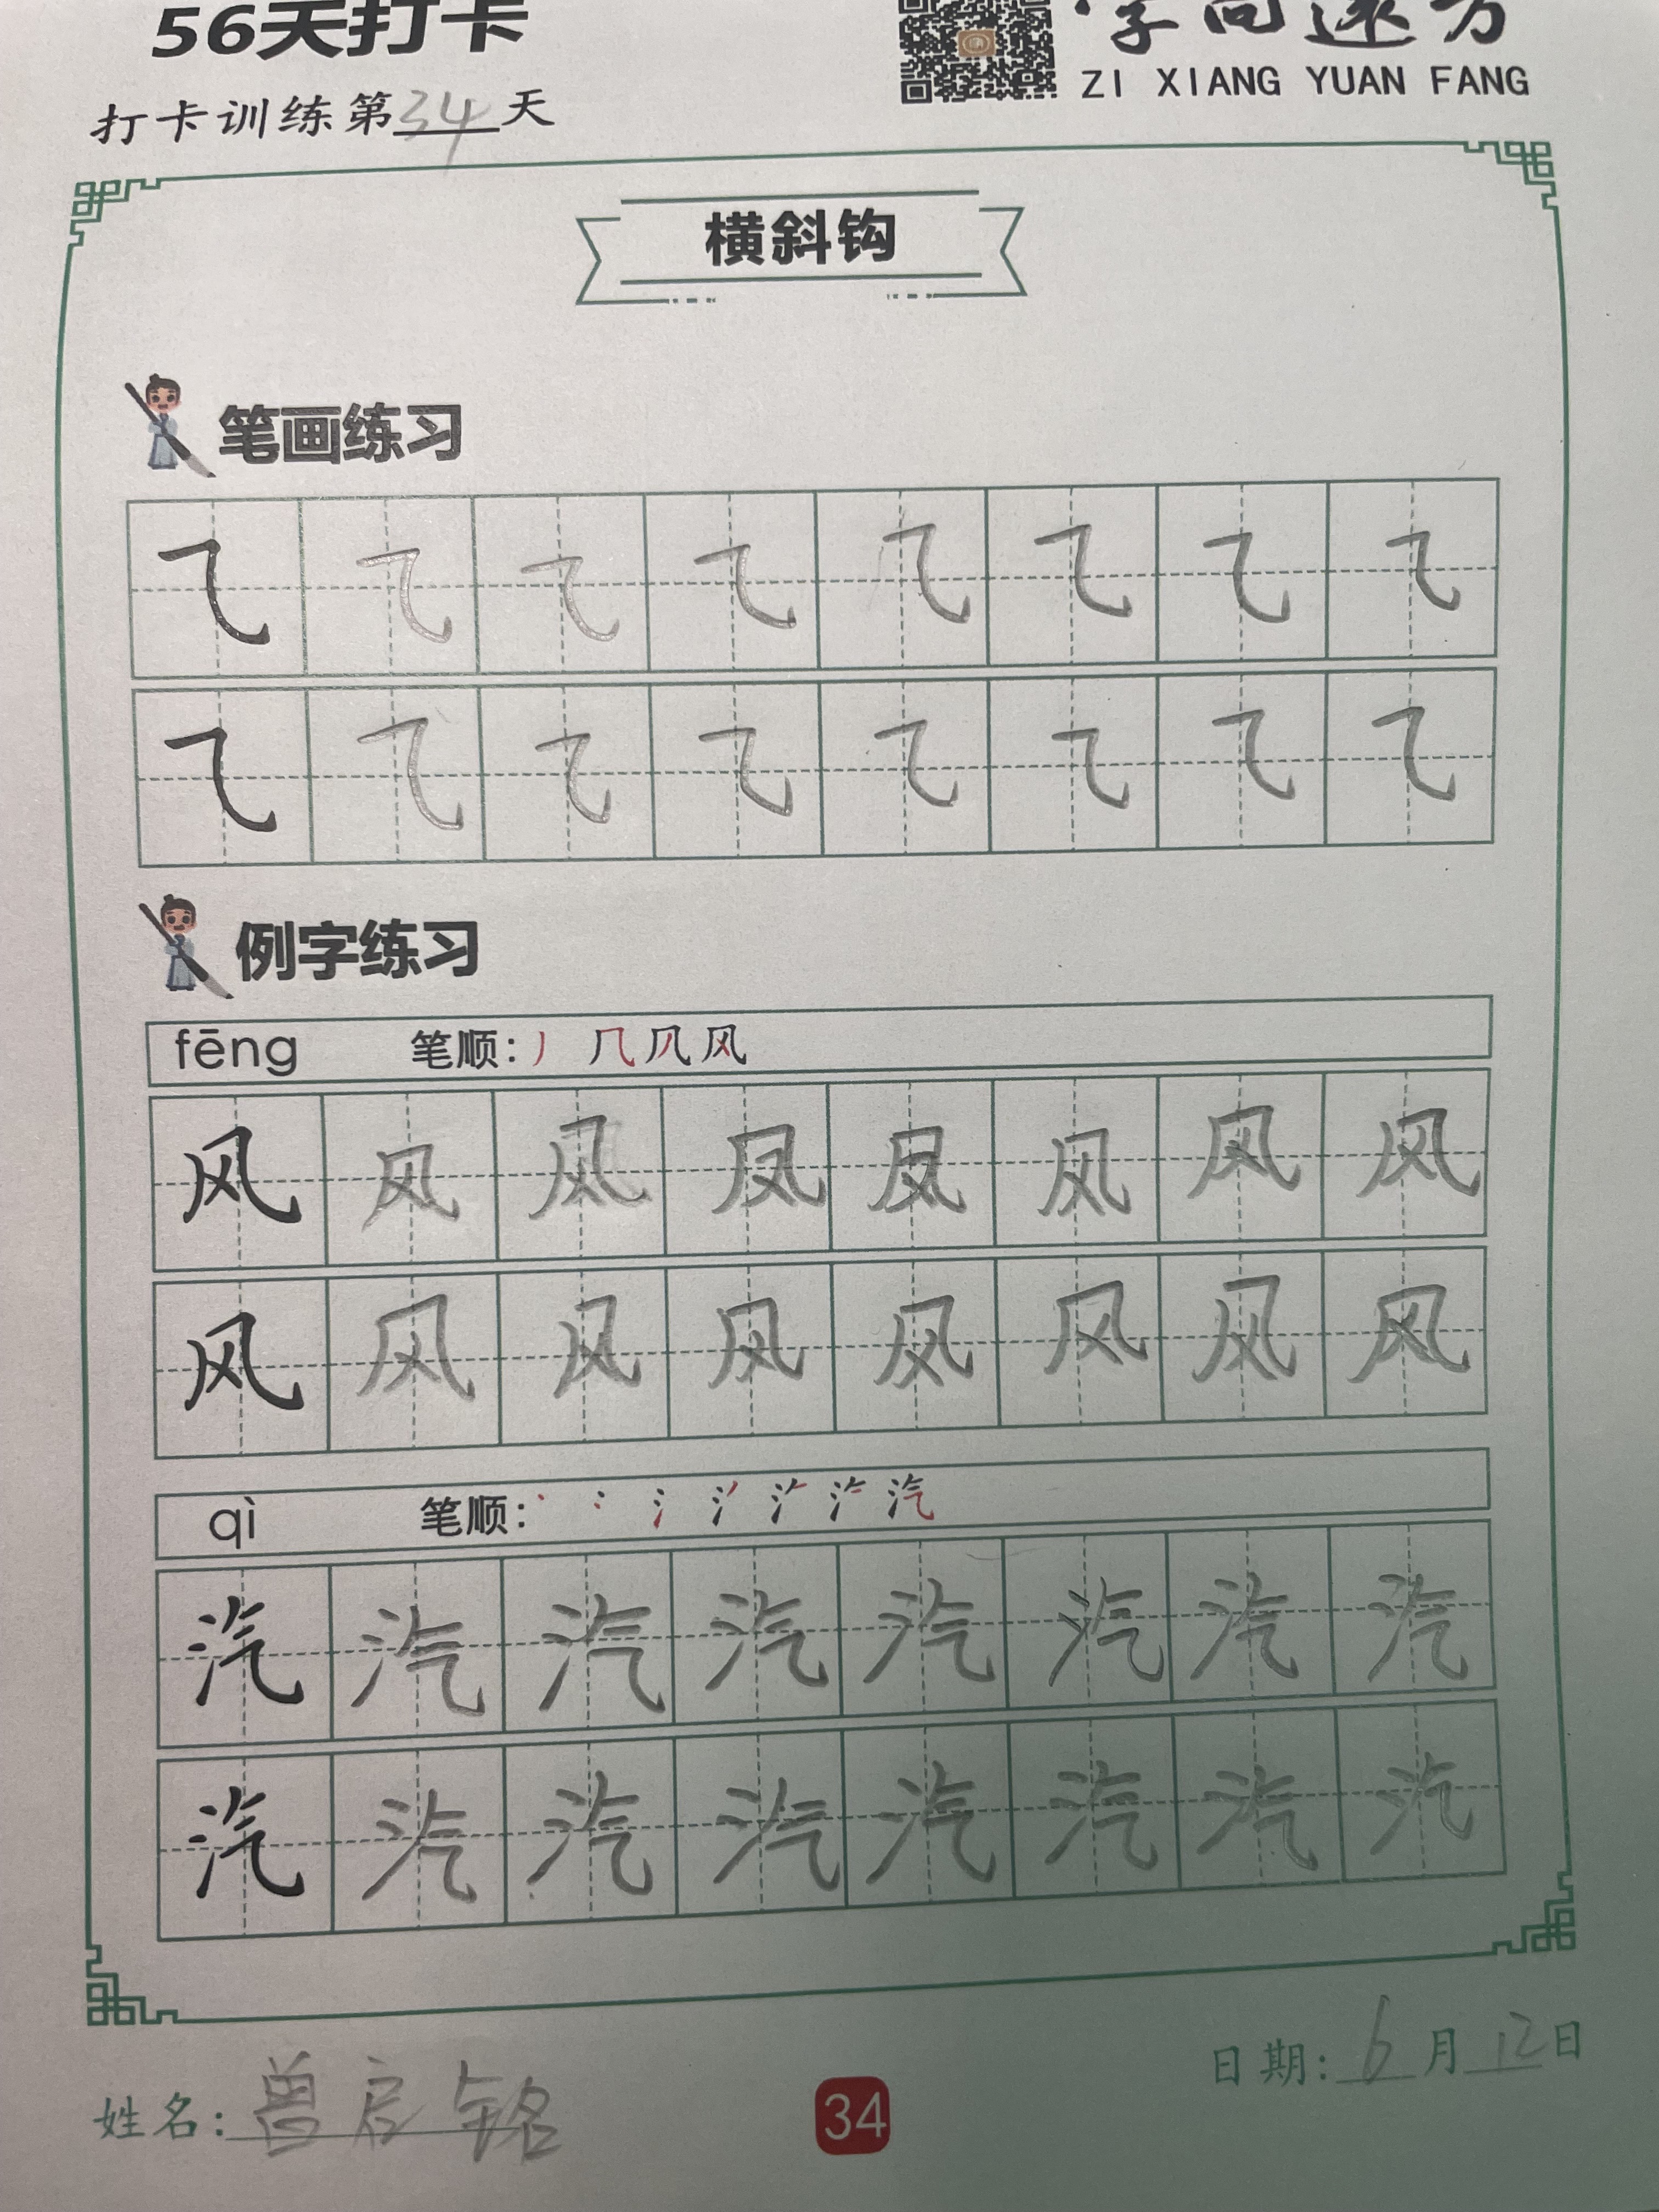 56天打卡
字向远方
ZI XIANG YUAN FANG
打卡训练第34天
横斜钩
笔画练习
㇈ ㇈ ㇈ ㇈ ㇈ ㇈ ㇈ ㇈
㇈ ㇈ ㇈ ㇈ ㇈ ㇈ ㇈ ㇈
例字练习
fēng 笔顺:
风 风 风 风 风 风 风 风
风 风 风 风 风 风 风 风
qì 笔顺:
汽 汽 汽 汽 汽 汽 汽 汽
汽 汽 汽 汽 汽 汽 汽 汽
日期:6月12日
姓名:曾启铭
34